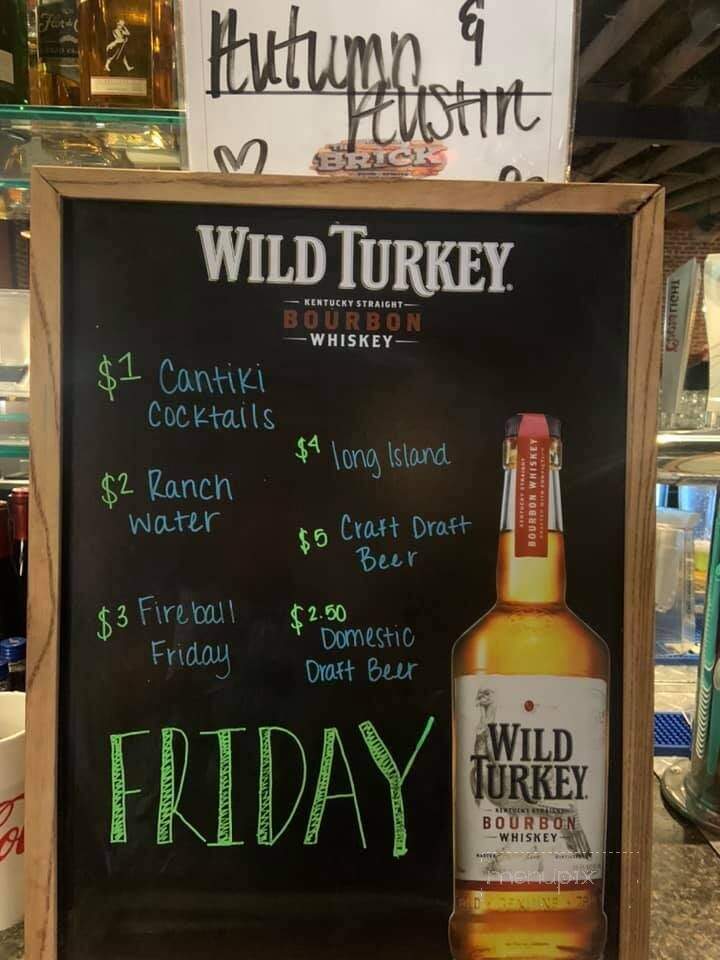 Autumn &
Austin
BRICK
WILD TURKEY
KENTUCKY STRAIGHT
BOURBON
WHISKEY
$1 Cantiki
Cocktails
$2 Ranch
water
$3 Fireball
Friday
$4 long Island
$5 Craft Draft
Beer
$2.50
Domestic
Draft Beer
FRIDAY
KENTUCKY STRAIGHT
BOURBON WHISKEY
WILD
TURKEY
KENTUCKY STRAIGHT
BOURBON
WHISKEY
menupix
Coors Light